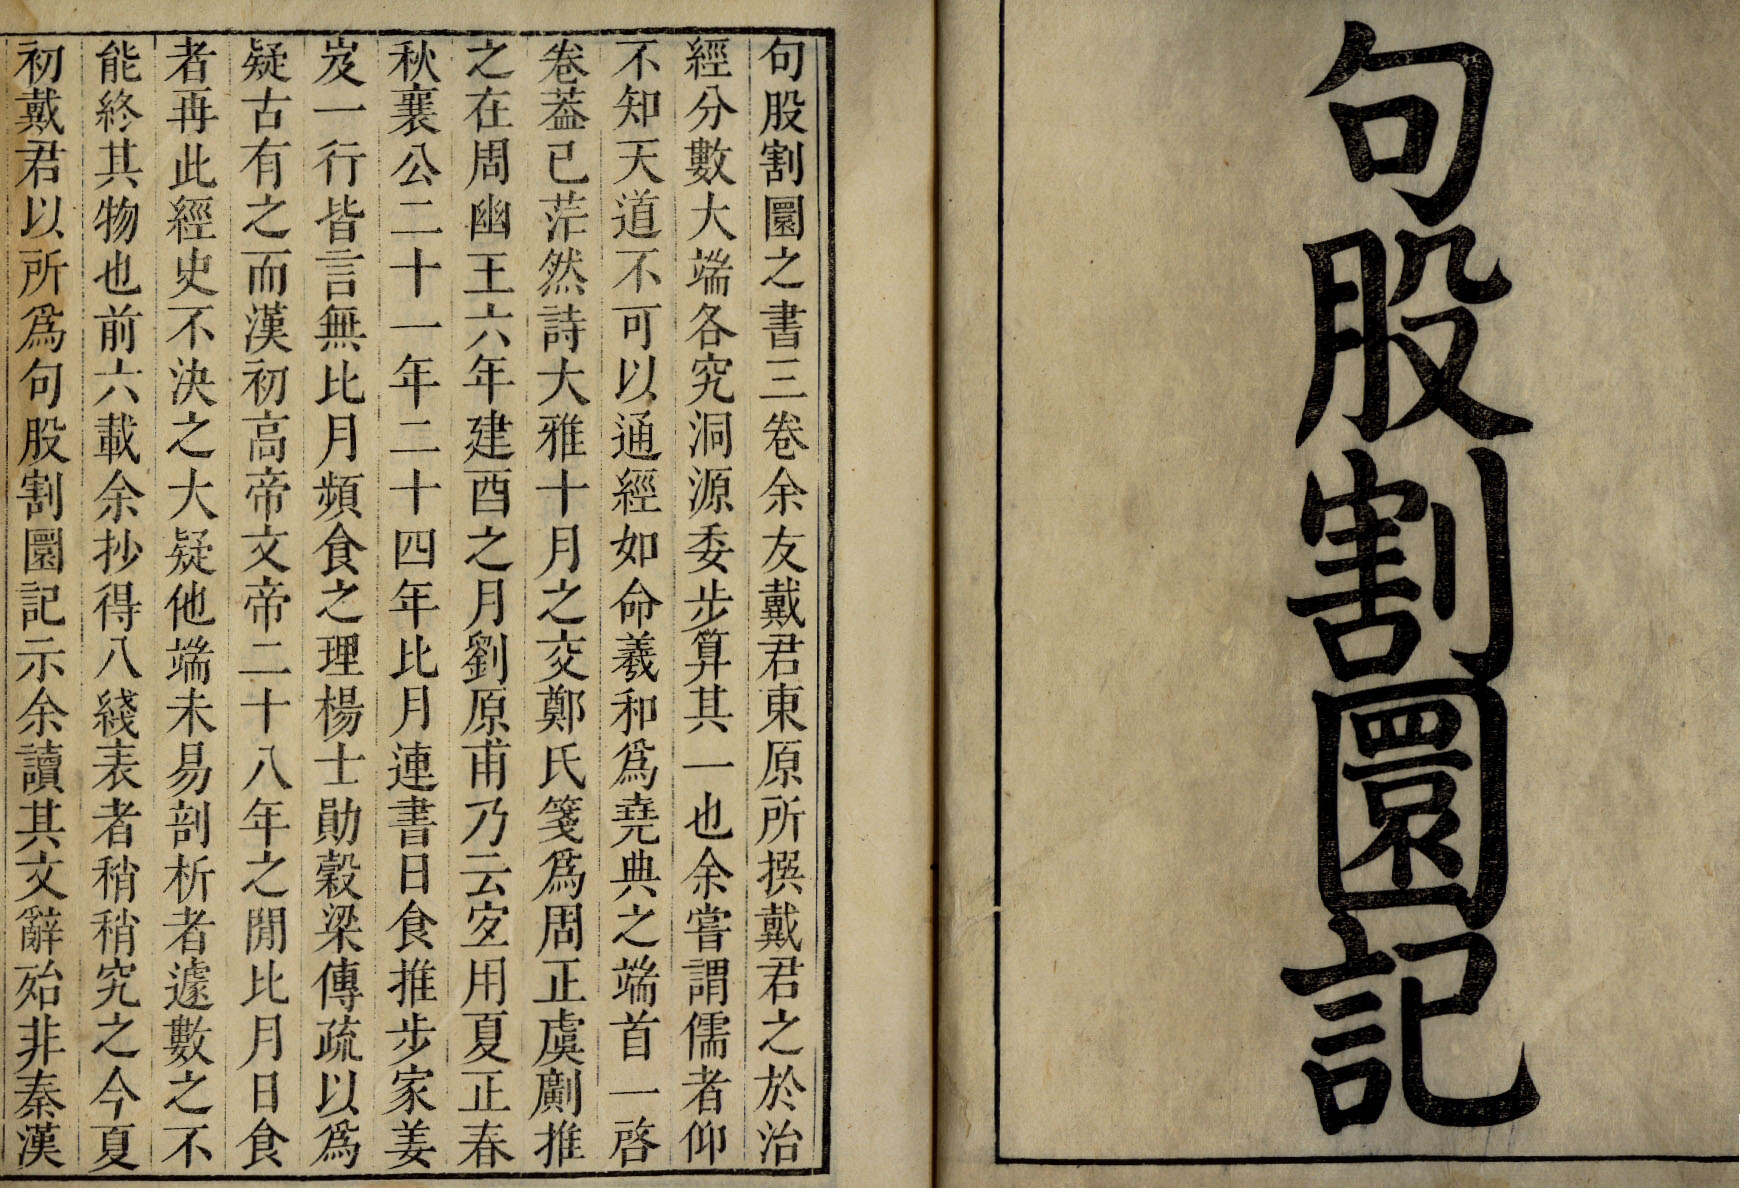 句股割圜記
句股割圜之書三卷余友戴君東原所撰戴君之於治
經分數大端各究洞源委步算其一也余嘗謂儒者仰
不知天道不可以通經如命羲和爲堯典之端首一啓
卷葢已茫然詩大雅十月之交鄭氏箋爲周正虞劆推
之在周幽王六年建酉之月劉原甫乃云㝎用夏正春
秋襄公二十一年二十四年比月連書日食推步家姜
岌一行皆言無比月頻食之理楊士勛穀梁傳疏以爲
疑古有之而漢初高帝文帝二十八年之閒比月日食
者再此經史不決之大疑他端未易剖析者遽數之不
能終其物也前六載余抄得八綫表者稍稍究之今夏
初戴君以所爲句股割圜記示余讀其文辭始非秦漢